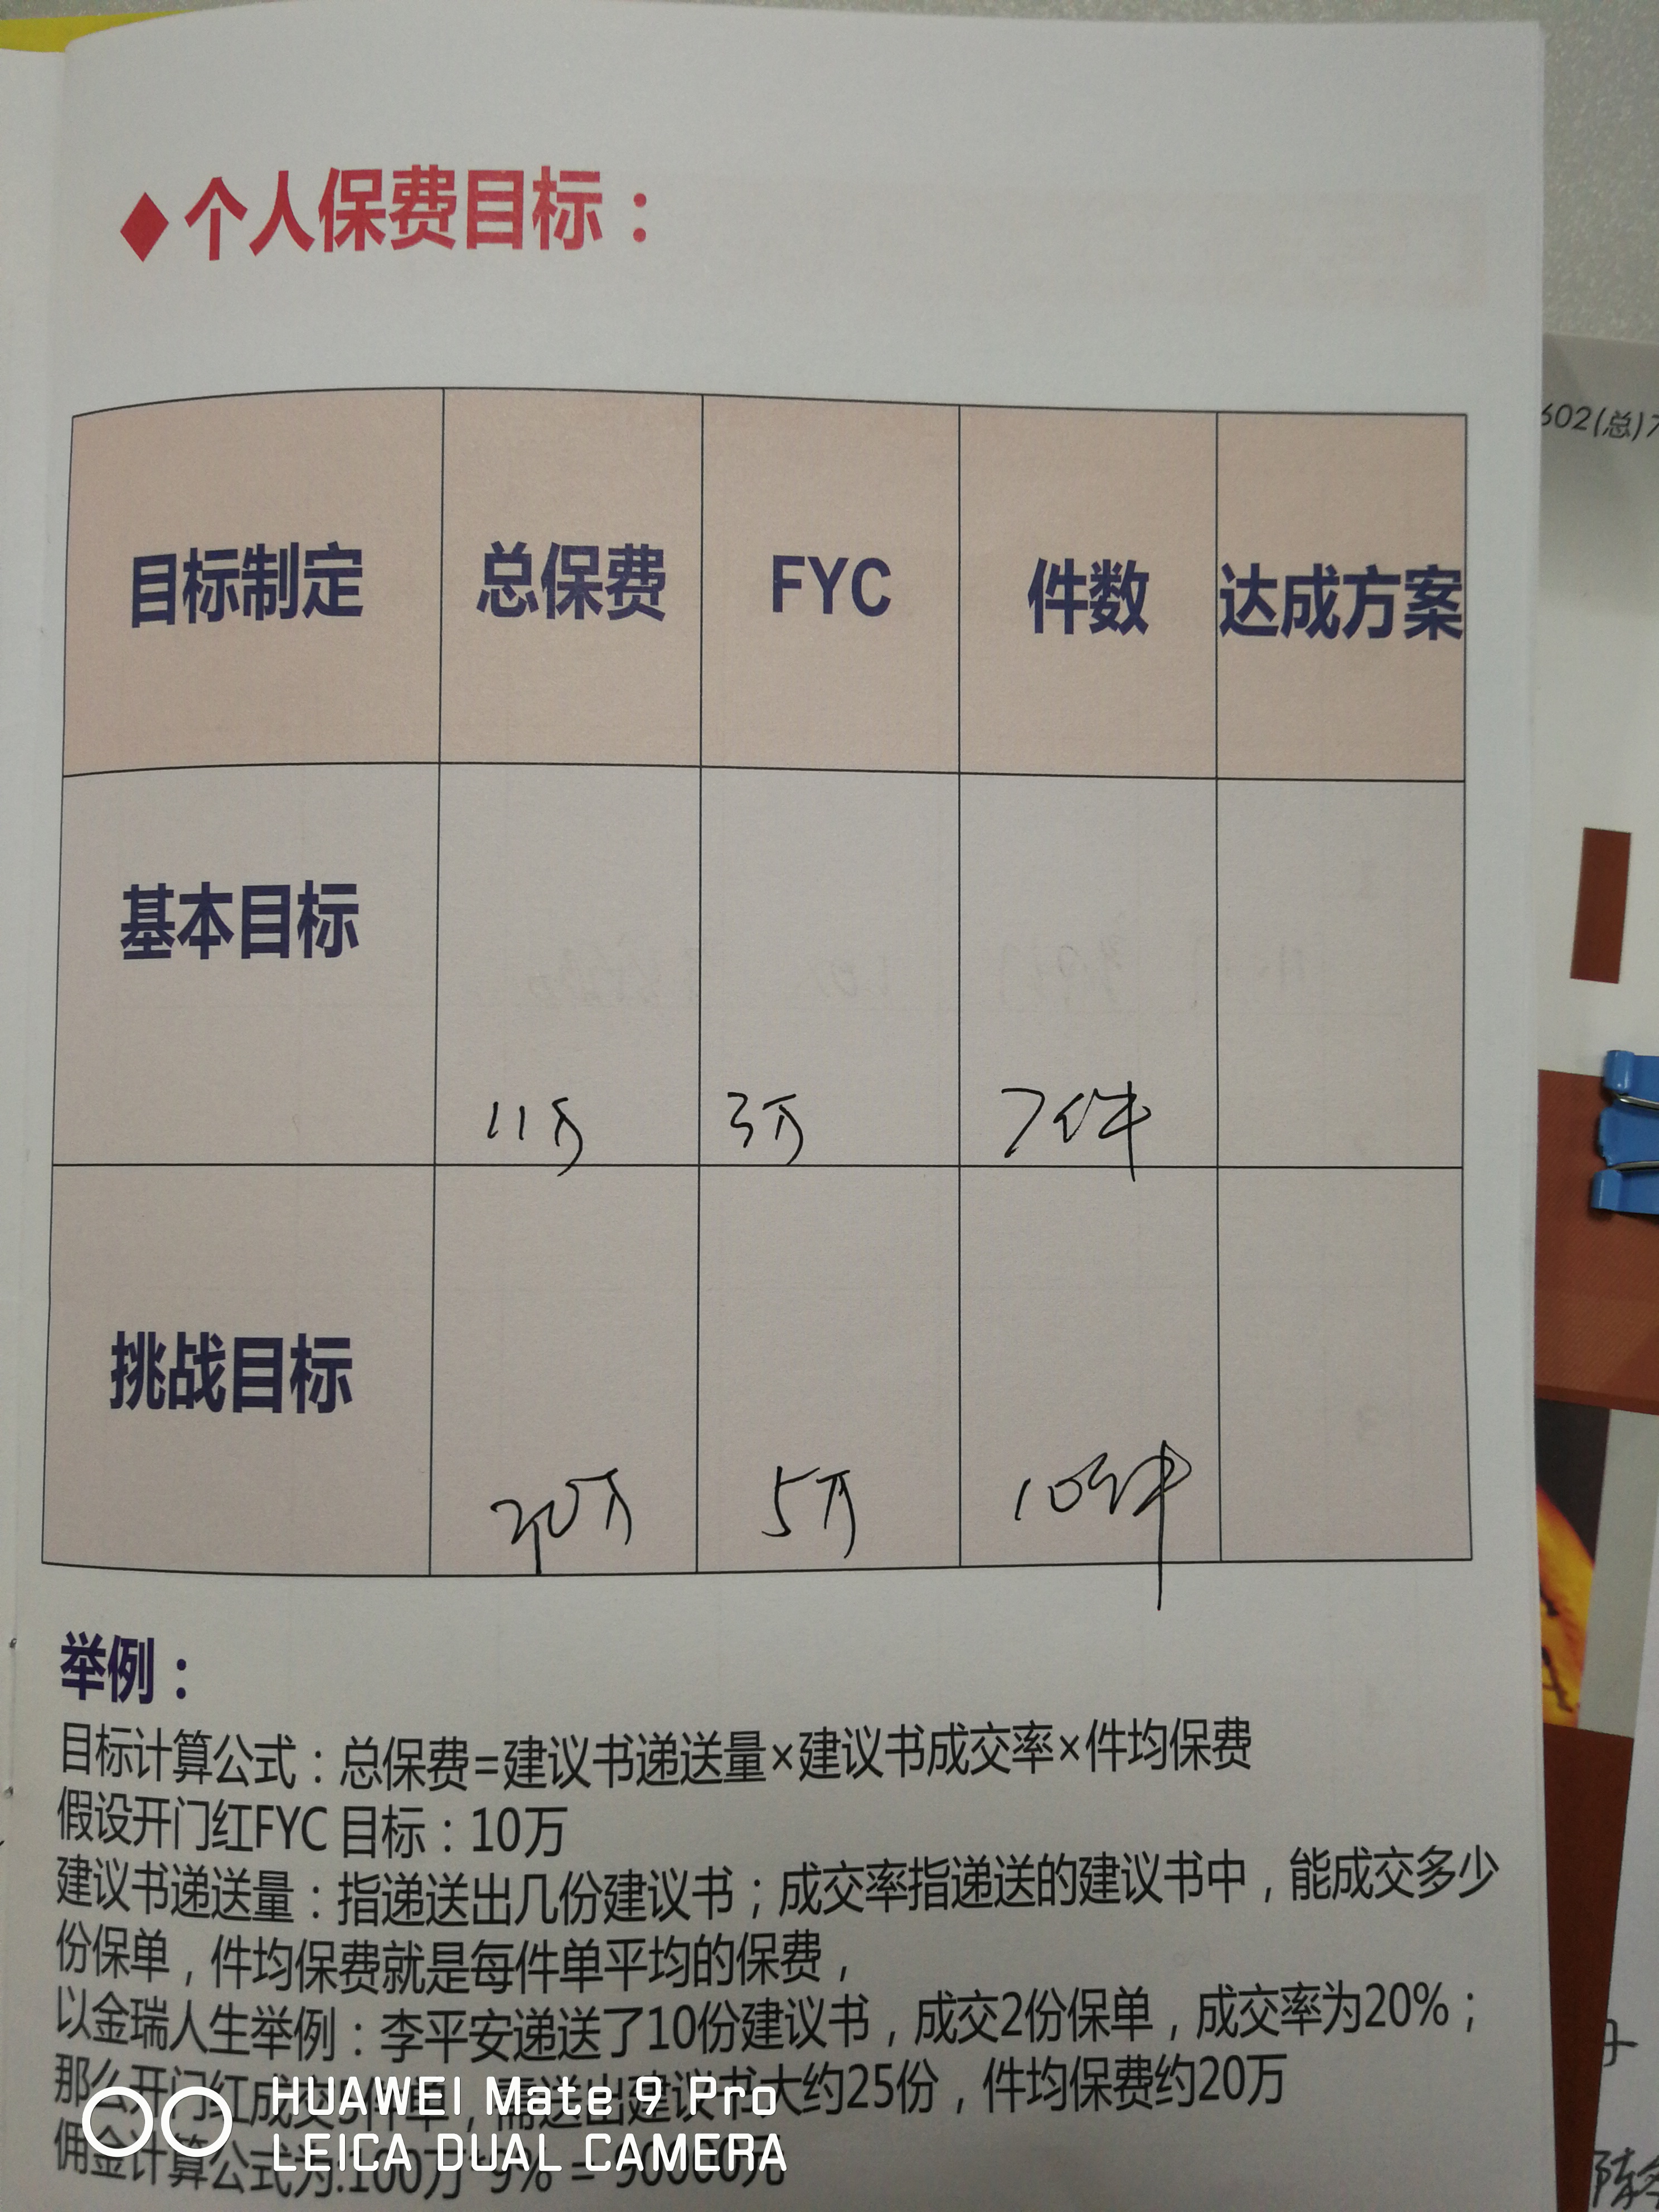 ◆个人保费目标：
602(总)7
目标制定 总保费 FYC 件数 达成方案
基本目标 11万 3万 7件
挑战目标 20万 5万 10件
举例：
目标计算公式：总保费=建议书递送量×建议书成交率×件均保费
假设开门红FYC 目标：10万
建议书递送量：指递送出几份建议书；成交率指递送的建议书中，能成交多少
份保单，件均保费就是每件单平均的保费，
以金瑞人生举例：李平安递送了10份建议书，成交2份保单，成交率为20%；
那么开门红成交5件单，需送出建议书大约25份，件均保费约20万
佣金计算公式为:100万*9% = 90000元
HUAWEI Mate 9 Pro
LEICA DUAL CAMERA